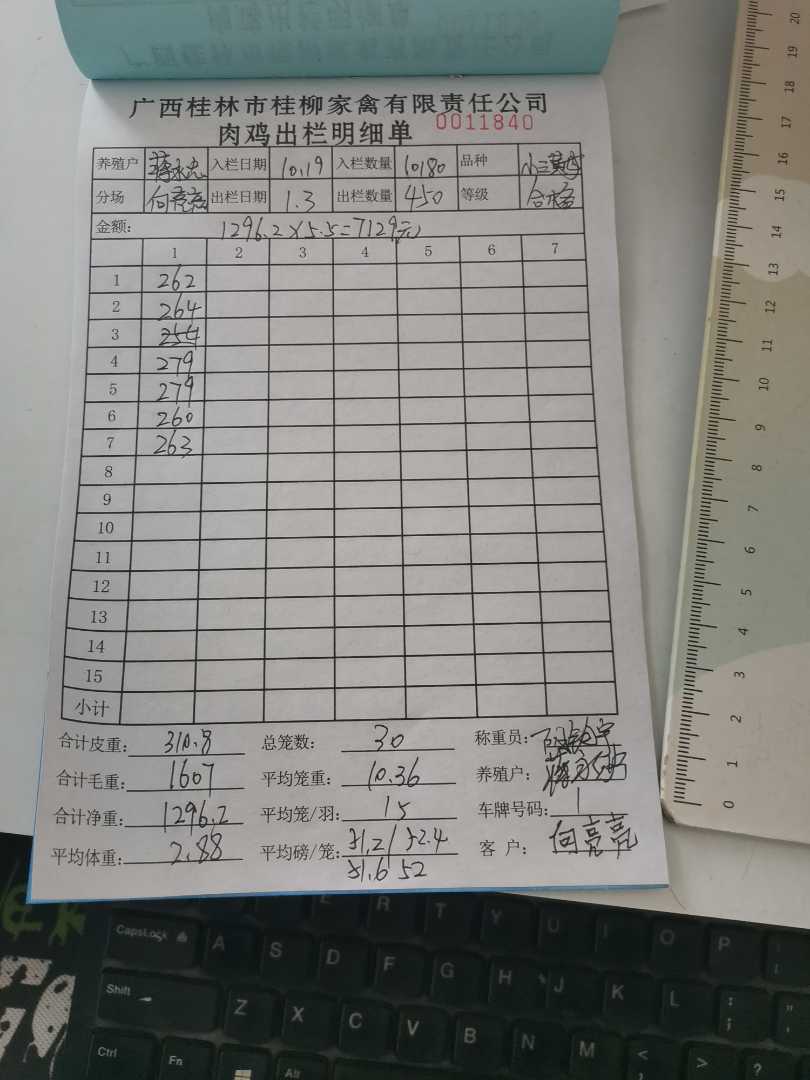 广西桂林市桂柳家禽有限责任公司
肉鸡出栏明细单 0011840
养殖户 蒋永忠 入栏日期 10.19 入栏数量 10180 品种 小三黄
分场 向亮亮 出栏日期 1.3 出栏数量 450 等级 合格
金额: 1296.2×5.5=7129元
1 2 3 4 5 6 7
1 262
2 264
3 254
4 279
5 279
6 260
7 263
8
9
10
11
12
13
14
15
小计
合计皮重: 310.8 总笼数: 30 称重员:
合计毛重: 1607 平均笼重: 10.36 养殖户:
合计净重: 1296.2 平均笼/羽: 15 车牌号码: 1
平均体重: 2.88 平均磅/笼: 51.2/52.4 客户: 向亮亮
51.6 52
20
19
18
17
16
15
14
13
12
11
10
9
8
7
6
5
4
3
2
1
0
E R T Y U I O P
CapsLock A S D F G H J K L : ;
Shift Z X C V B N M < > ?
Ctrl Fn Alt